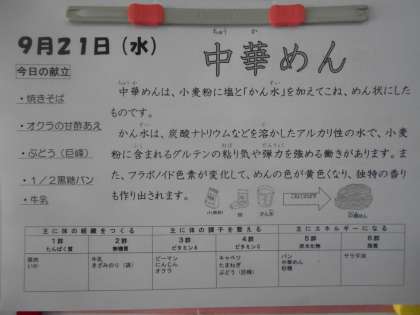 9月21日（水）
ちゅう か
中華めん
今日の献立
・焼きそば
・オクラの甘酢あえ
・ぶどう（巨峰）
・1／2黒糖パン
・牛乳
中華めんは、小麦粉に塩と「かん水」を加えてこね、めん状にした
ものです。
かん水は、炭酸ナトリウムなどを溶かしたアルカリ性の水で、小麦
粉に含まれるグルテンの粘り気や弾力を強める働きがあります。ま
た、フラボノイド色素が変化して、めんの色が黄色くなり、独特の香り
も作り出されます。
小麦粉 塩 かん水 中華めん
主に体の組織をつくる 主に体の調子を整える 主にエネルギーになる
1群 2群 3群 4群 5群 6群
たんぱく質 無機質 ビタミンA ビタミンC 炭水化物 脂質
豚肉 牛乳 ピーマン キャベツ パン サラダ油
いか きざみのり（袋） にんじん たまねぎ 中華めん
オクラ ぶどう（巨峰） 砂糖